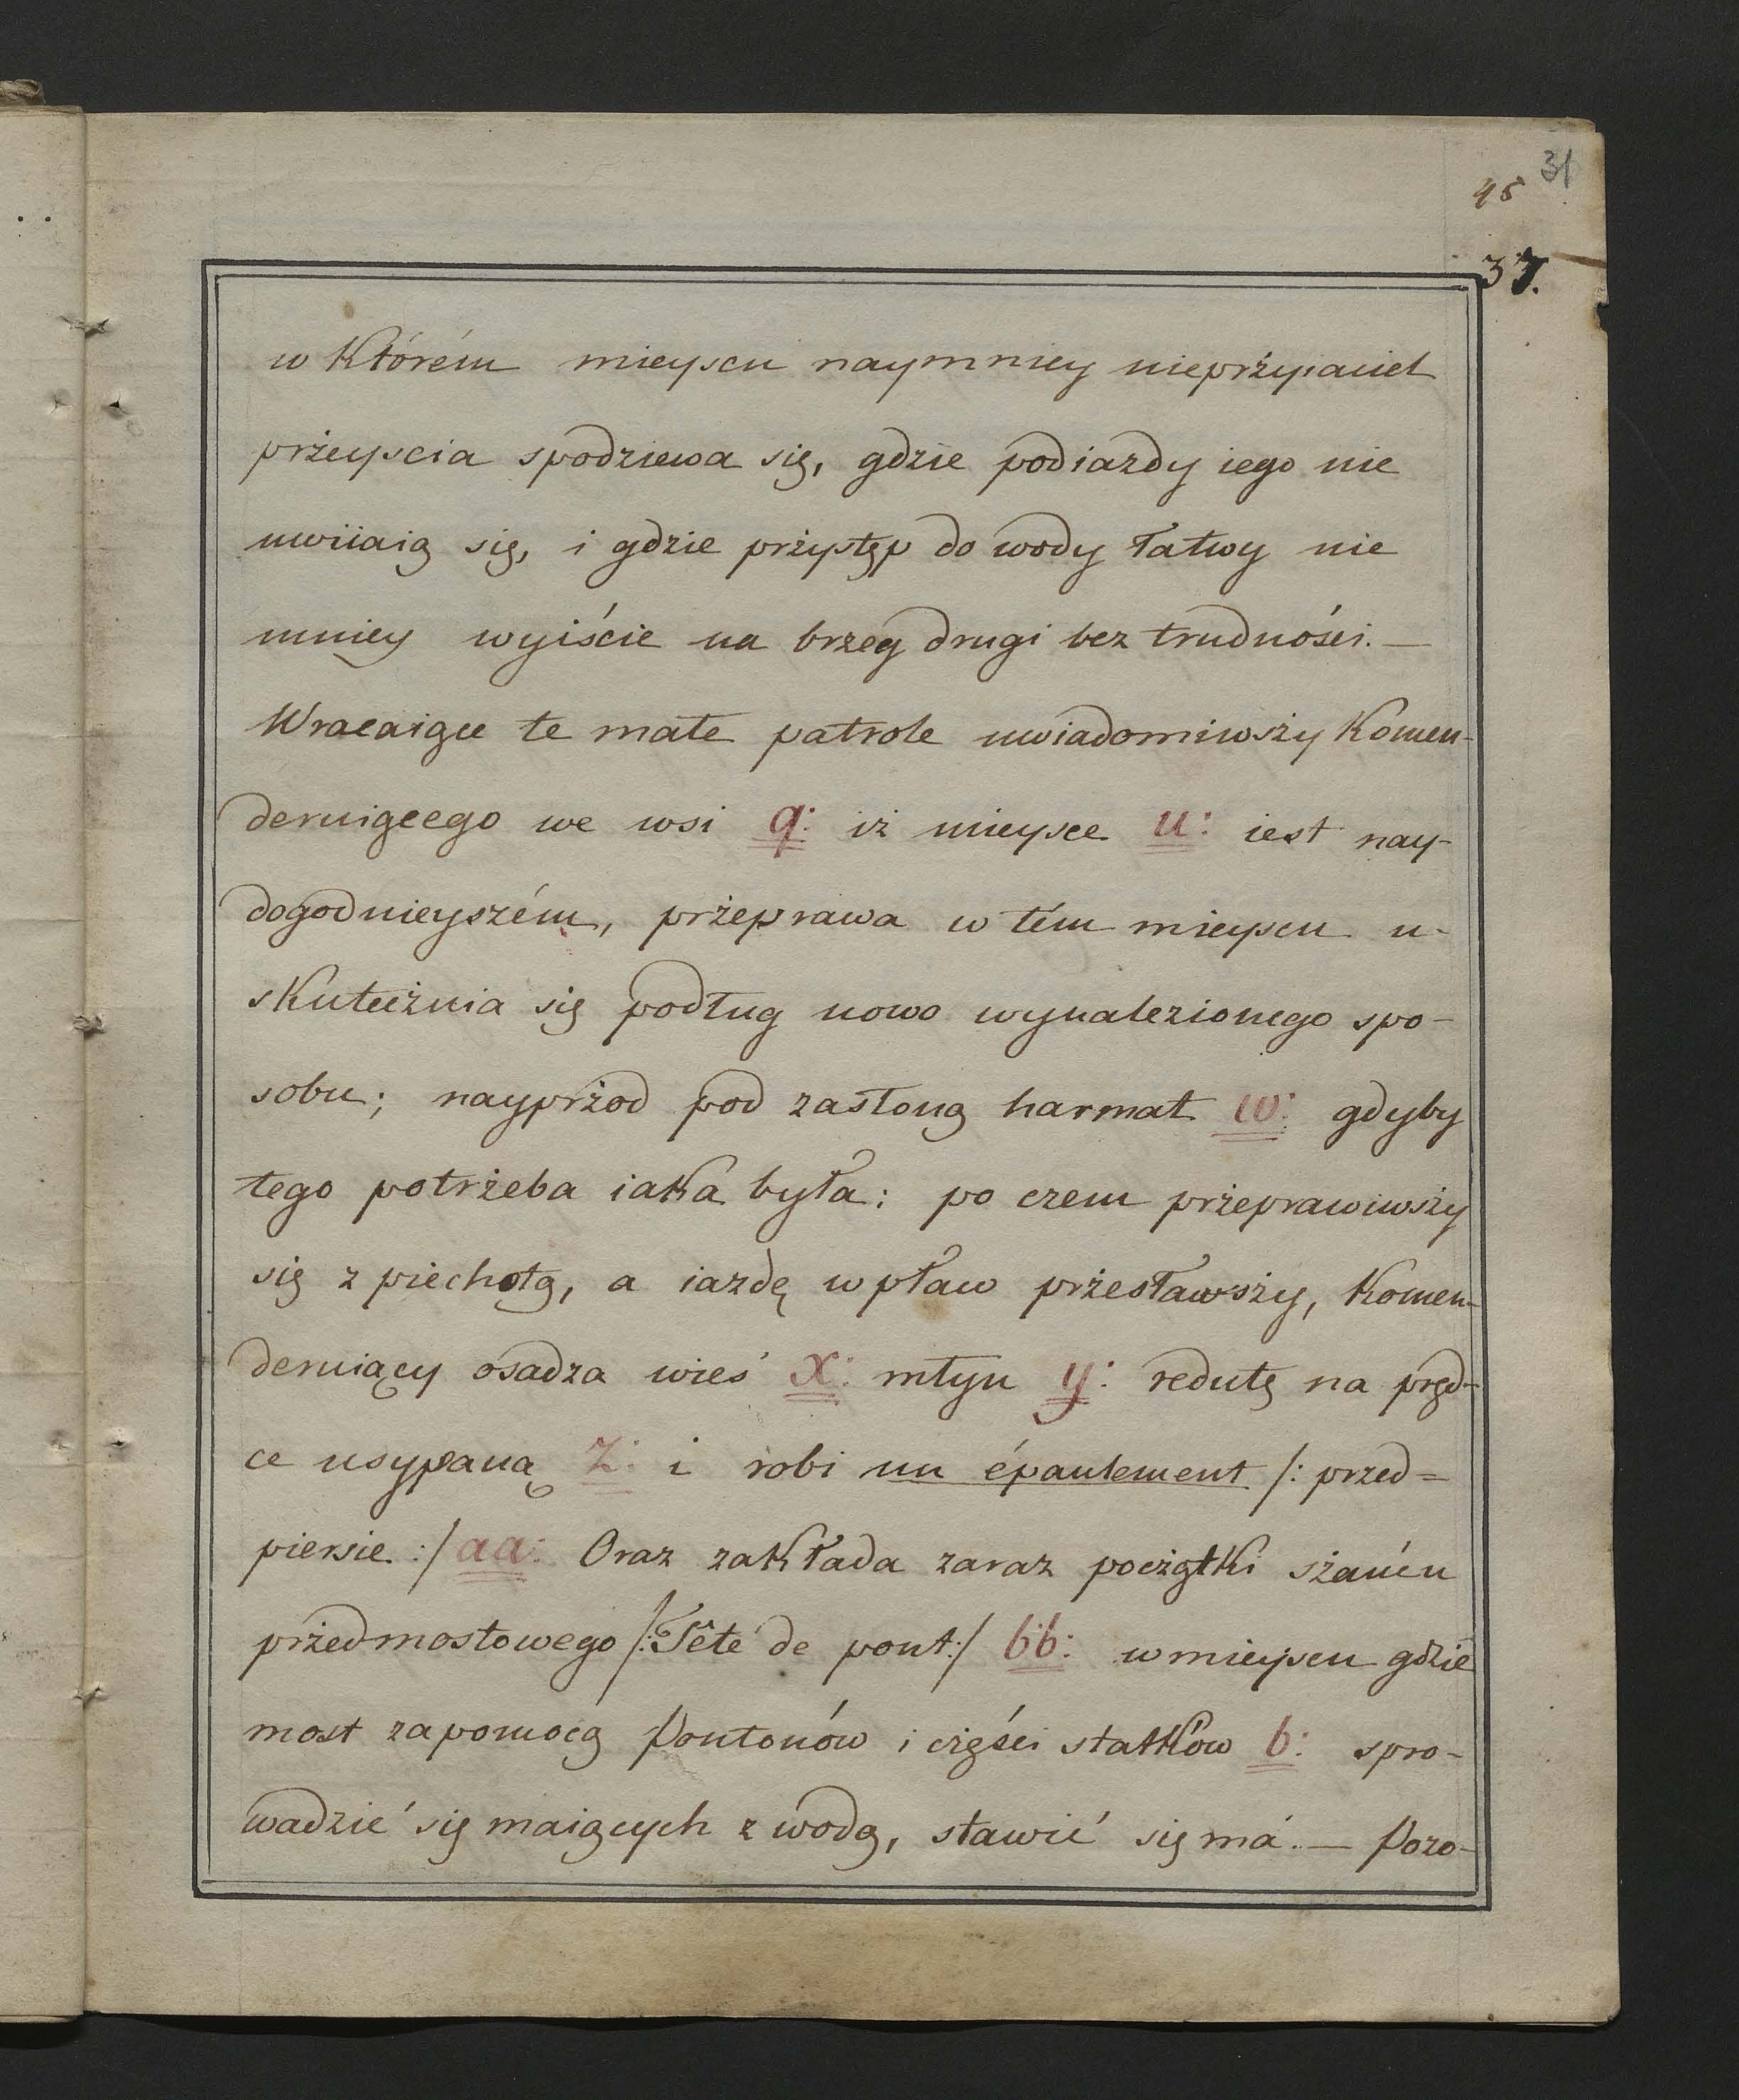 31
45
37.
w którém mieyscu naymniey nieprżyiaciel
prżeyscia spodziewa się, gdzie podiazdy iego nie
uwiiaią się, i gdzie prżystęp do wody łatwy nie
mniey wyiście na brzeg drugi bez trudności. —
Wracaiące te małe patrole uwiadomiwszy Komen-
deruiącego we wsi q: iż mieysce u: iest nay-
dogodnieyszém, prżeprawa w tém mieyscu u-
skuteczżnia się podług nowo wynalezionego spo-
sobu; nayprżod pod zasłoną harmat w: gdyby
tego potrżeba iaka była: po czem prżeprawiwszy
się z piechotą, a iazdę w pław prżesławszy, Komen-
deruiący osadza wieś x: młyn y: redutę na pręd-
ce usypaną z: i robi un épaulement /: przed=
piersie :/ aa: Oraz zakłada zaraz początki szańcu
prżedmostowego /: Tête de pont :/ bb: w mieyscu gdzie
most zapomocą Pontonów i części statków b: spro-
wadzić się maiących z wodą, stawić się má. — Pozo-